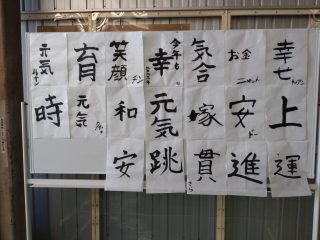 元気
育
笑顔
今年も
幸
気合
お金
幸せ
時
元気
和
元気
塚
安
上
安
跳
貫
進
運